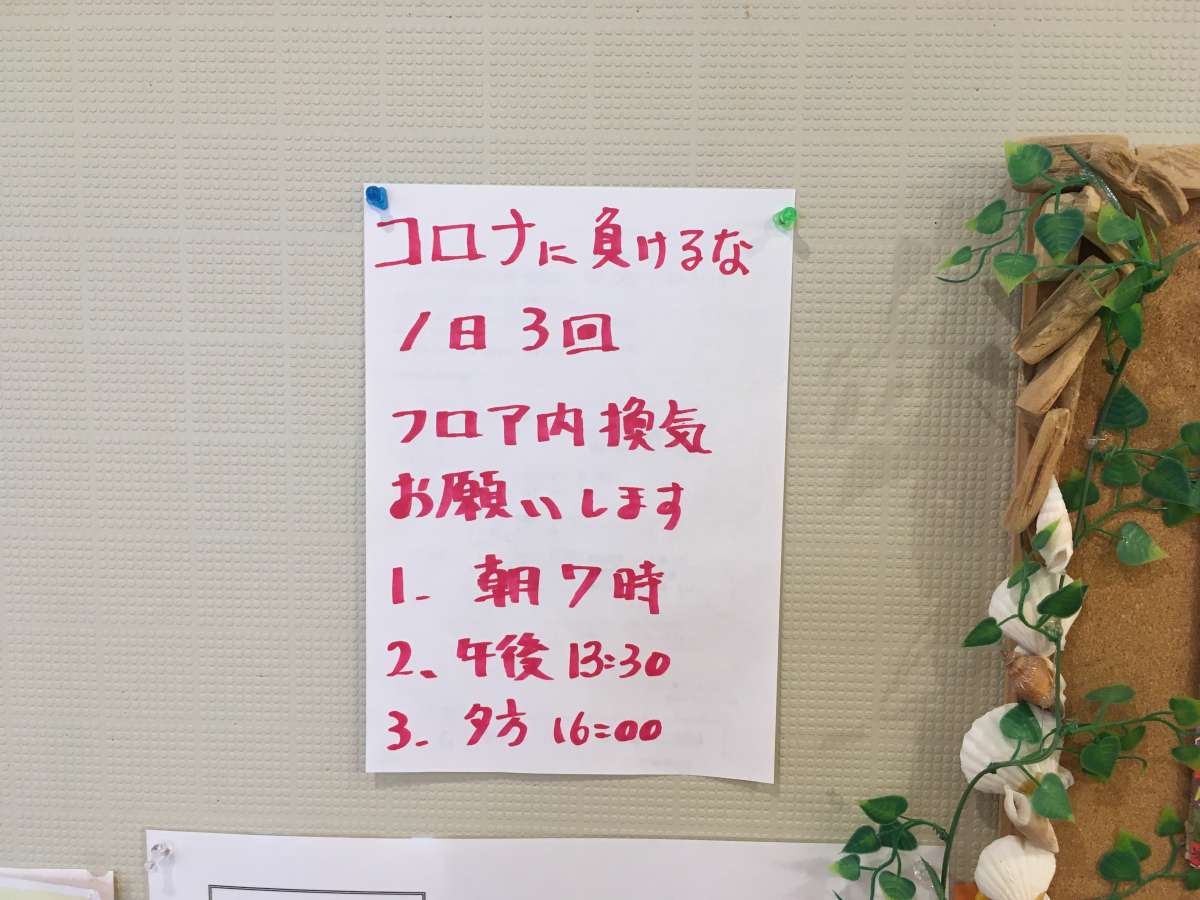 コロナに負けるな
1日3回
フロア内換気
お願いします
1. 朝7時
2、午後13:30
3. 夕方16:00